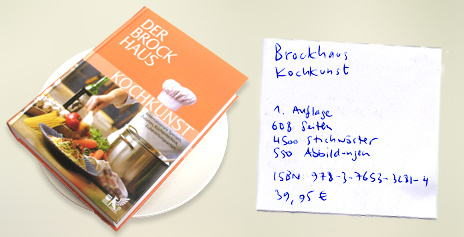 DER
BROCK
HAUS
KOCHKUNST
Brockhaus
Kochkunst
1. Auflage
608 Seiten
4500 Stichwörter
550 Abbildungen
ISBN: 978-3-7653-3281-4
39,95 €